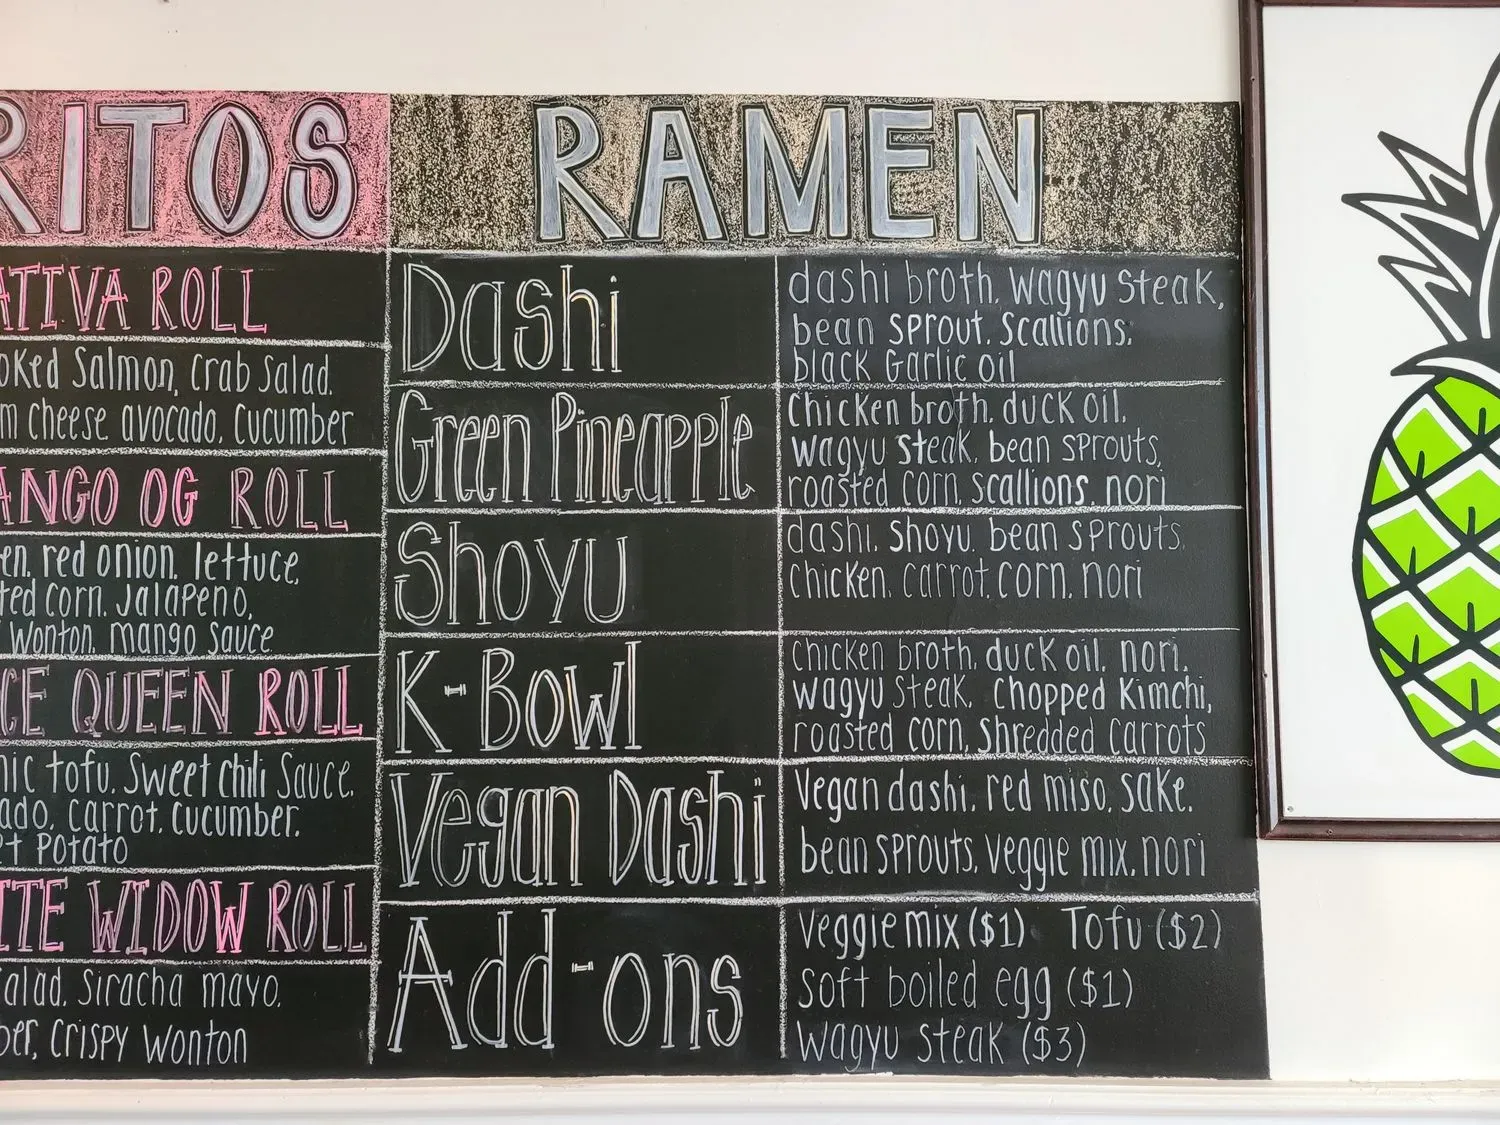 RITOS
ATIVA ROLL
oked Salmon, Crab Salad.
m cheese avocado, cucumber
ANGO OG ROLL
en, red onion, lettuce,
ted corn, Jalapeno,
wonton, mango sauce
CE QUEEN ROLL
nic tofu, Sweet Chili Sauce,
ado, carrot, cucumber,
et Potato
ITE WIDOW ROLL
alad, Siracha mayo,
ber, Crispy Wonton
RAMEN
Dashi
dashi broth, wagyu steak,
bean sprout, Scallions,
black Garlic oil
Green Pineapple
Chicken broth, duck oil,
wagyu steak, bean sprouts,
roasted corn, scallions, nori
Shoyu
dashi, Shoyu, bean sprouts,
chicken, carrot, corn, nori
K-Bowl
chicken broth, duck oil, nori,
wagyu steak, chopped Kimchi,
roasted corn, shredded Carrots
Vegan Dashi
Vegan dashi, red miso, sake,
bean sprouts, Veggie mix, nori
Add-ons
Veggie mix ($1) Tofu ($2)
Soft boiled egg ($1)
Wagyu steak ($3)